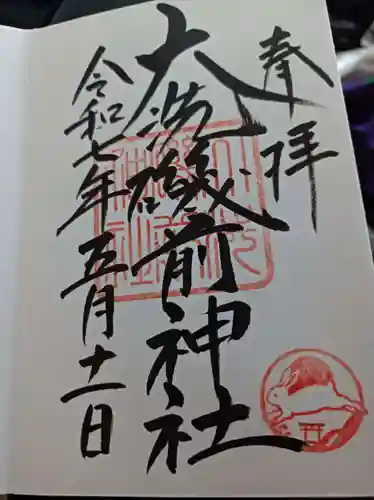 奉拝
大洗磯前神社
令和七年五月十一日